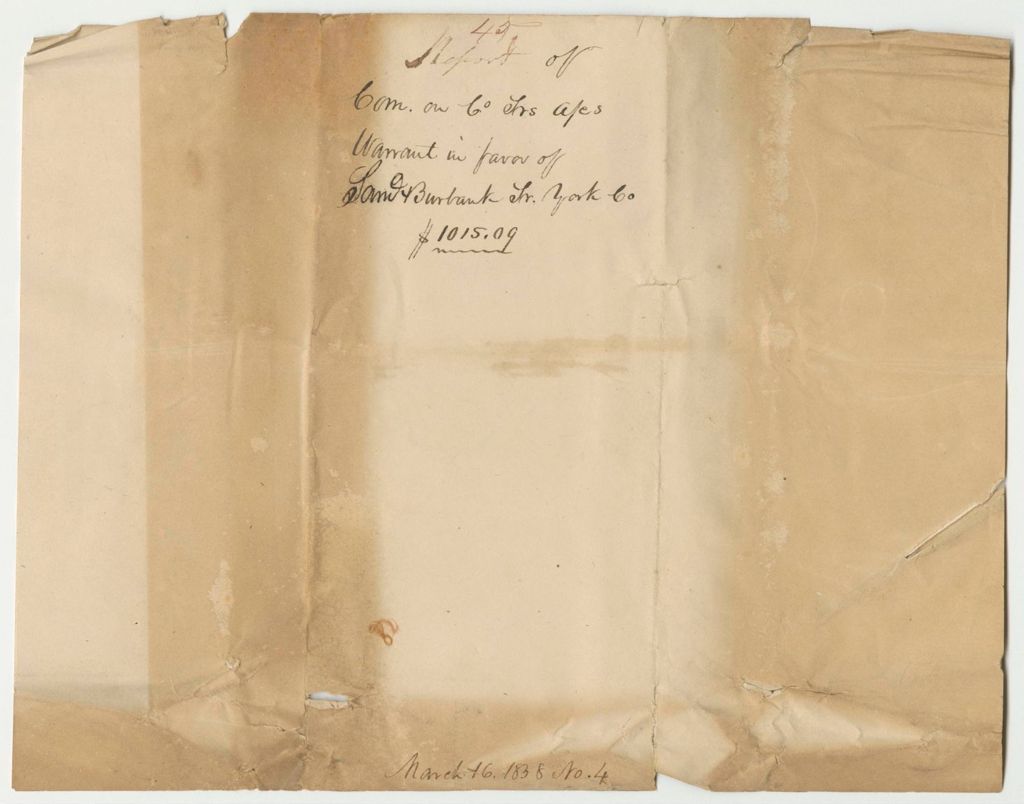 45
Report of
Com. on Co Trs a/cs
Warrant in favor of
Saml Burbank Tr. York Co
$1015.09
March 16. 1838 No. 4